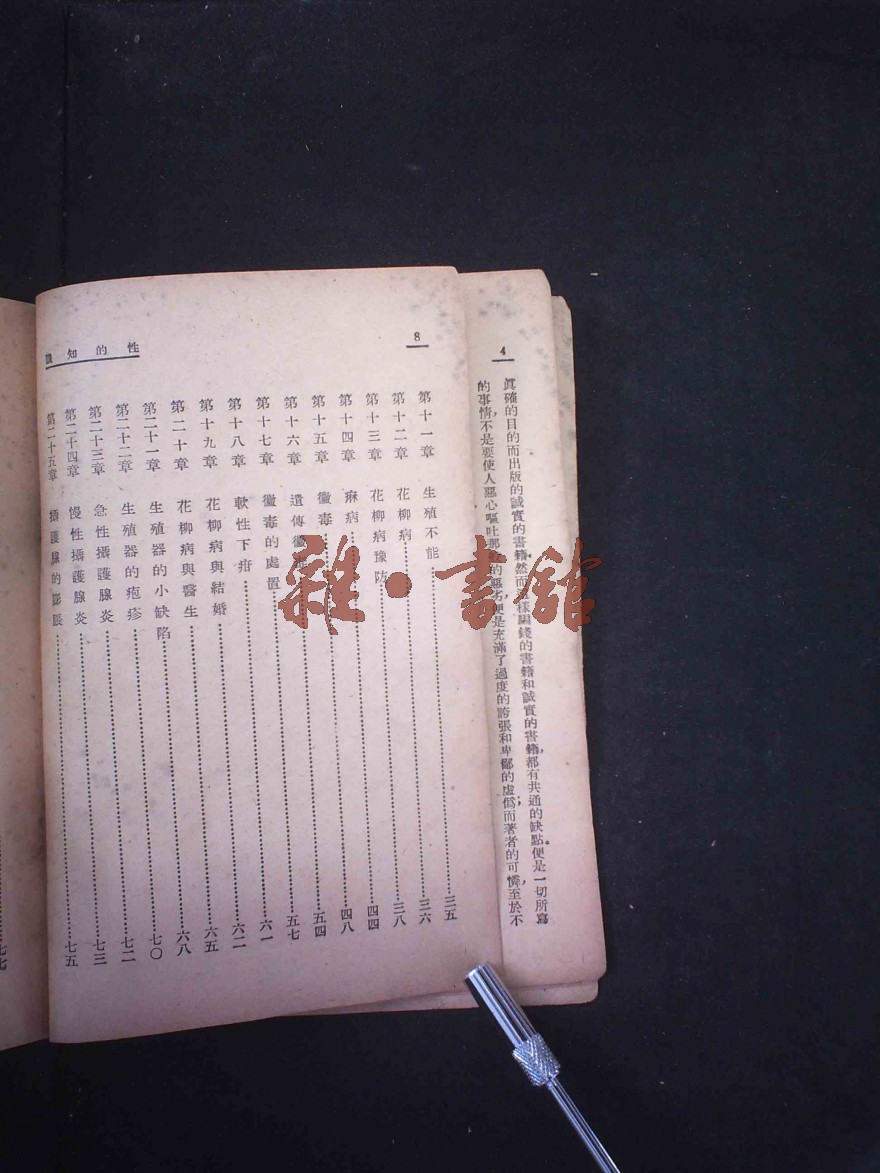 4
眞確的目的而出版的誠實的書籍然而這樣騙錢的書籍和誠實的書籍，都有共通的缺點。便是一切所寫
的事情，不是要使人惡心嘔吐那般的惡劣，便是充滿了過度的誇張和卑鄙的虛僞；而著者的可憐，至於不
8
性的知識
第十一章 生殖不能……三五
第十二章 花柳病……三六
第十三章 花柳病豫防……三八
第十四章 痳病……四四
第十五章 黴毒……四八
第十六章 遺傳黴毒……五四
第十七章 黴毒的處置……五七
第十八章 軟性下疳……六一
第十九章 花柳病與結婚……六二
第二十章 花柳病與醫生……六五
第二十一章 生殖器的小缺陷……六八
第二十二章 生殖器的疱疹……七〇
第二十三章 急性攝護腺炎……七二
第二十四章 慢性攝護腺炎……七三
第二十五章 攝護腺的膨脹……七五
七七
雜·書館